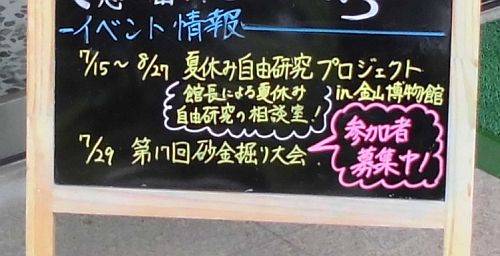 イベント情報
7/15〜8/27 夏休み自由研究プロジェクト
館長による夏休み in金山博物館
自由研究の相談室!
7/29 第17回砂金掘り大会
参加者
募集中!